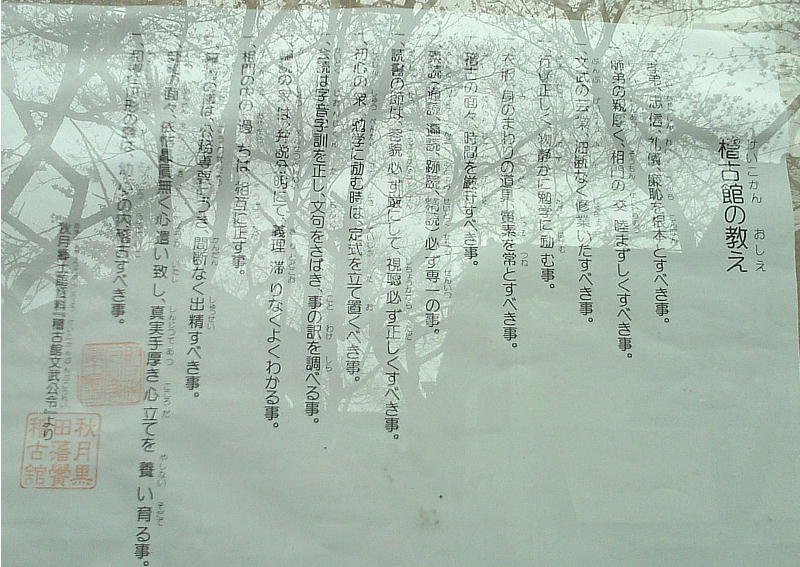 稽古館の教え
孝弟、忠信、礼儀、廉恥を根本とすべき事。
師弟の親厚く、相門の交睦まずしくすべき事。
一、文武の芸業、油断なく修業いたすべき事。
行儀正しく、物静かに勉学に励む事。
衣服、身のまわりの道具、質素を常とすべき事。
一、稽古の面々、時間を厳守すべき事。
素読、通読、遍読、跡読、精読、必ず専一の事。
読書の節は、容貌必ず厳にして、視聴必ず正しくすべき事。
一、初心の衆、勉学に励む時は、定式を立て置くべき事。
一、全読は字音字訓を正し、文句をさばき、事の訳を調べる事。
の衆は、弁説分明にて、義理滞りなくよくわかる事。
一、相門の中の過ちは、相互に正す事。
間断なく出精すべき事。
の面々、依怙贔屓無く心遣い致し、真実手厚き心立てを養い育る事。
の内稽古すべき事。
『稽古館文武公令』より
秋月黒田藩學稽古館